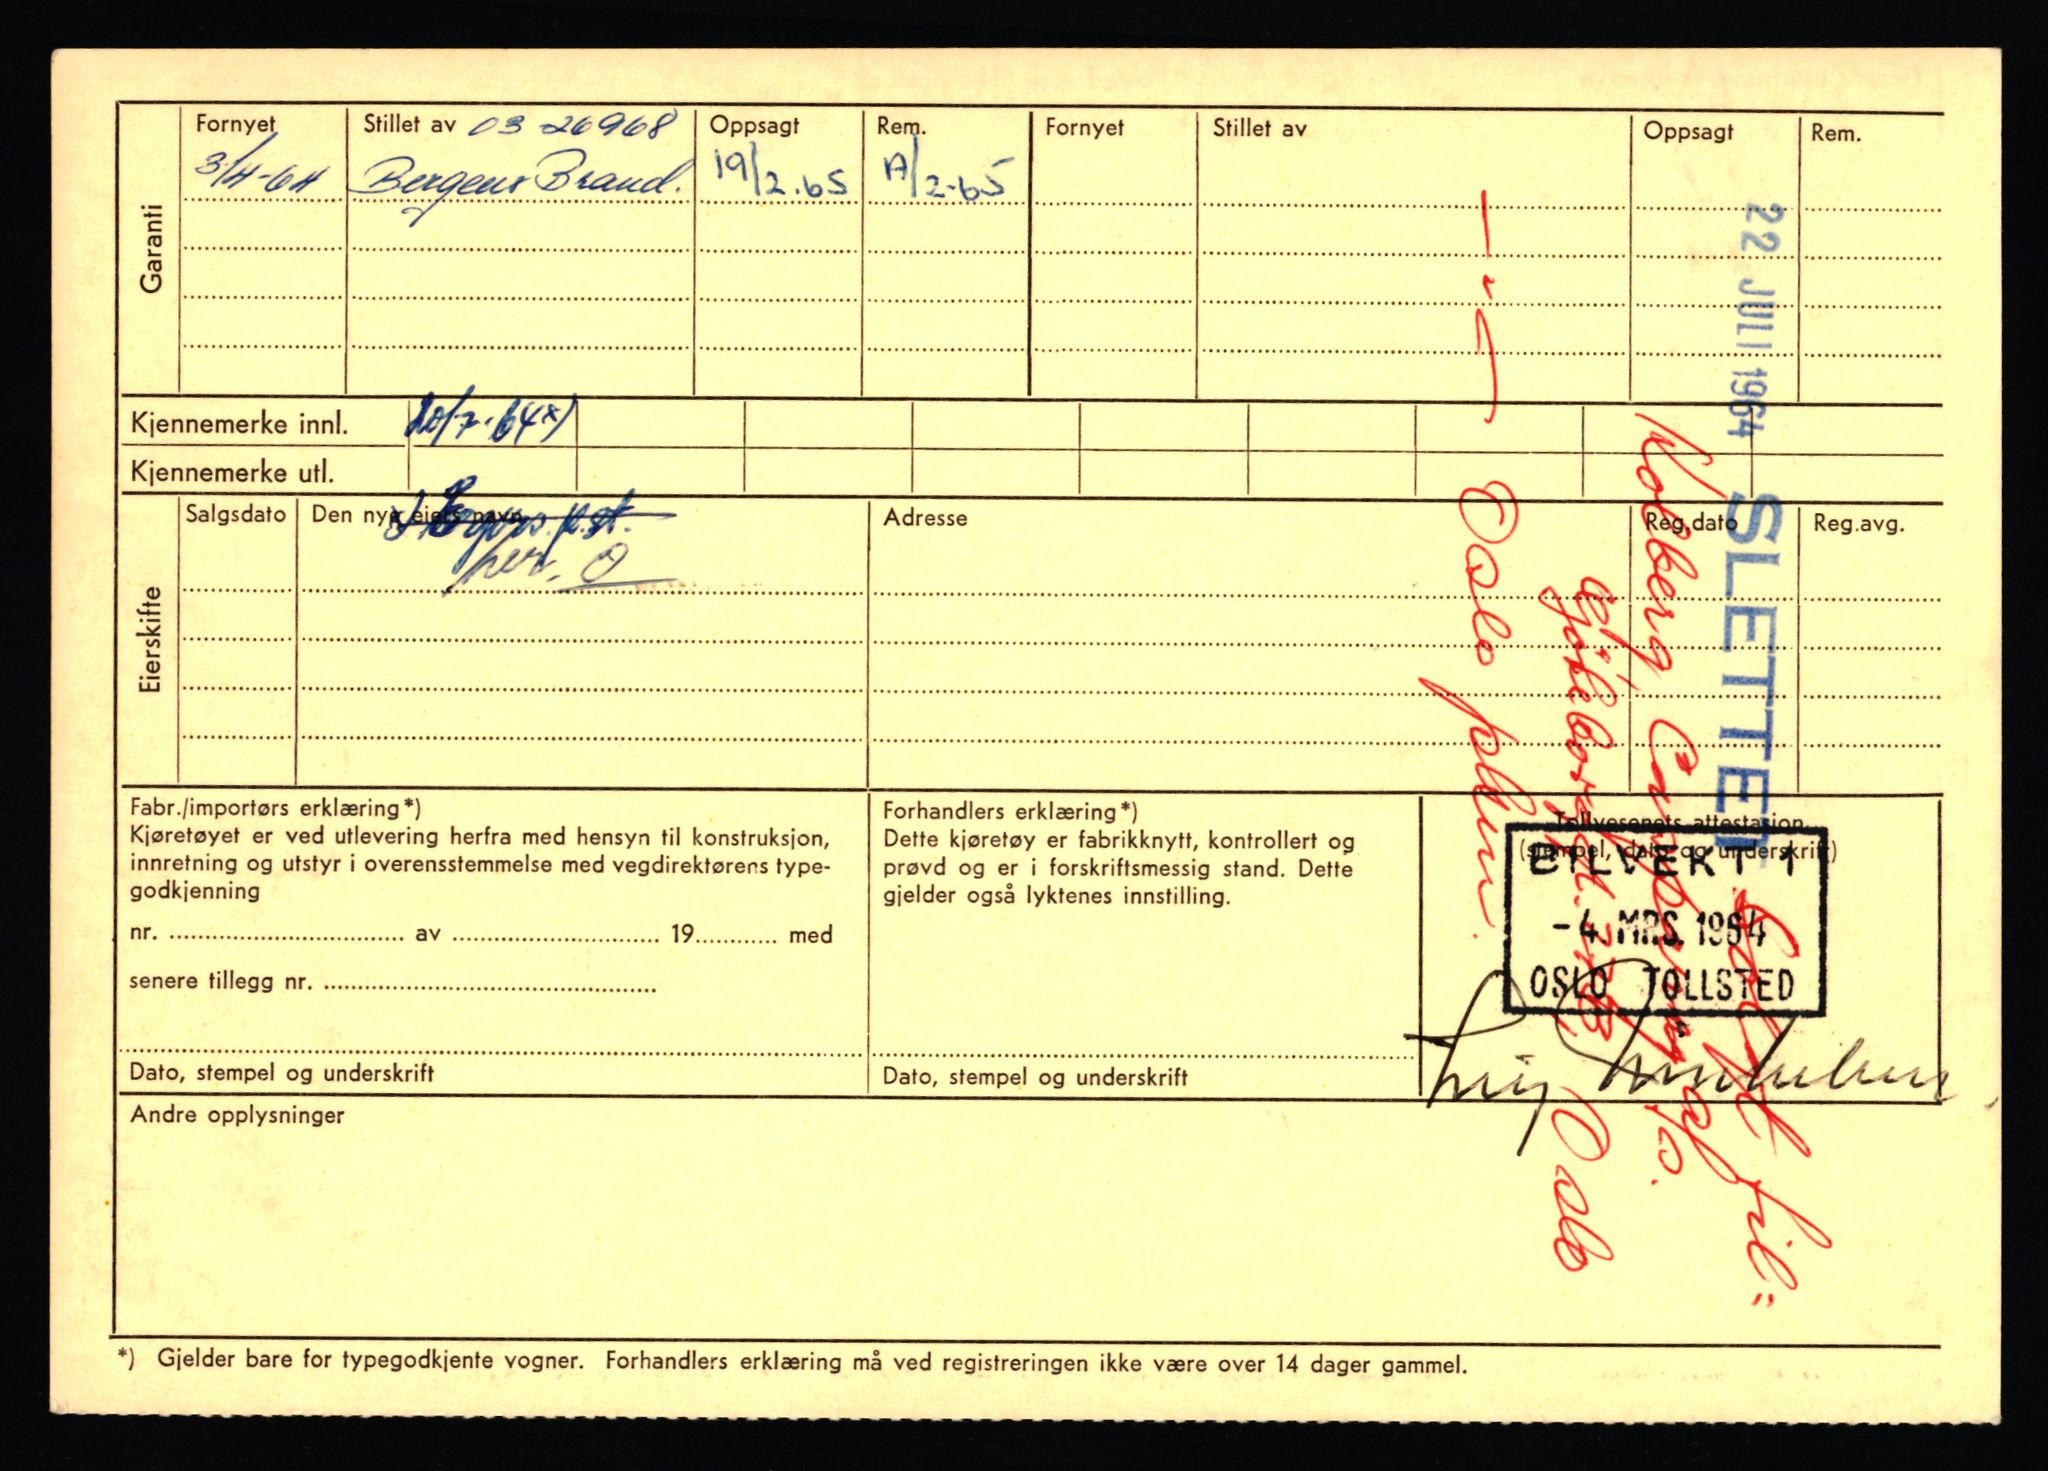 Garanti
Fornyet Stillet av 03 26968 Oppsagt Rem. Fornyet Stillet av Oppsagt Rem.
3/4-64 Bergens Brand. 19/2.65 A/2-65
Kjennemerke innl. 20/7-64 x)
Kjennemerke utl.
Eierskifte
Salgsdato Den nye eiers navn Adresse Reg.dato Reg.avg.
p.st.
her. O
Fabr./importørs erklæring*)
Kjøretøyet er ved utlevering herfra med hensyn til konstruksjon,
innretning og utstyr i overensstemmelse med vegdirektørens type-
godkjenning
nr. .................... av .................... 19............ med
senere tillegg nr. ....................
Dato, stempel og underskrift
Forhandlers erklæring*)
Dette kjøretøy er fabrikknytt, kontrollert og
prøvd og er i forskriftsmessig stand. Dette
gjelder også lyktenes innstilling.
Dato, stempel og underskrift
Tollvesenets attestasjon
(stempel, dato og underskrift)
BILVEKT 1
-4. MRS. 1964
OSLO TOLLSTED
22 JULI 1964 SLETTET
Solgt til:
Oslo
Oslo politi.
Andre opplysninger
*) Gjelder bare for typegodkjente vogner. Forhandlers erklæring må ved registreringen ikke være over 14 dager gammel.